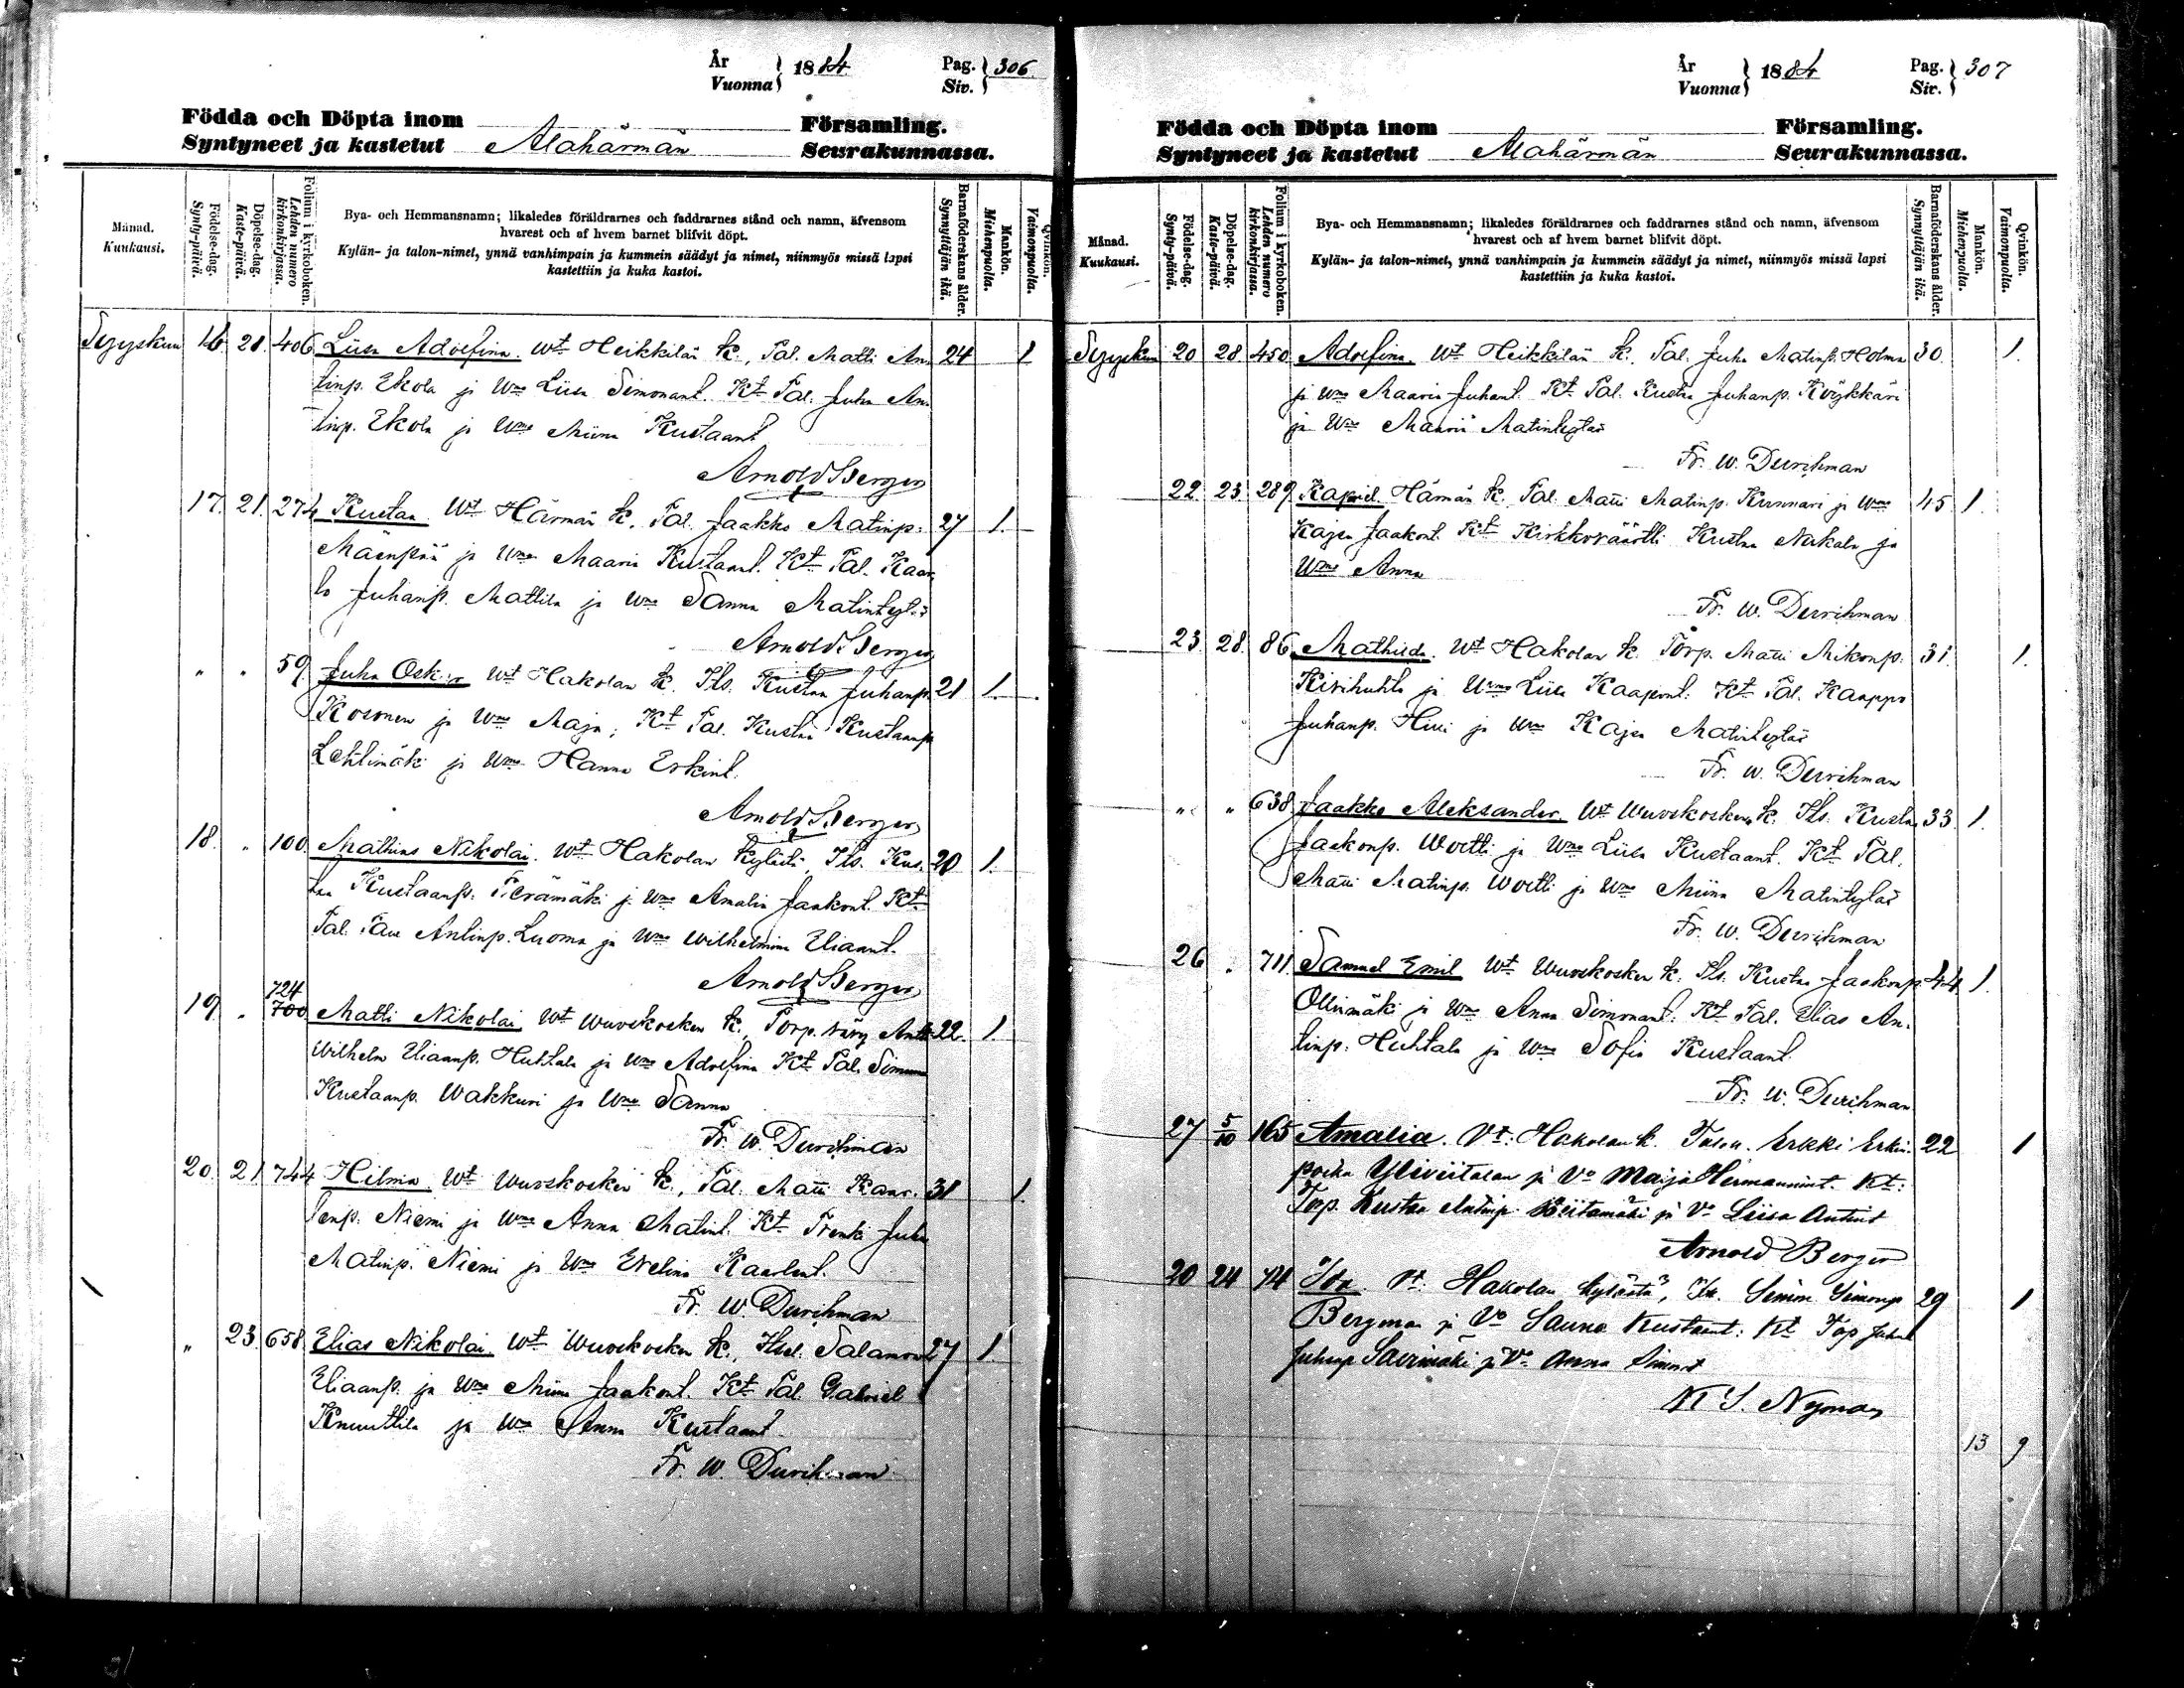 År
Vuonna
1884
Pag.
Siv.
306
Födda och Döpta inom
Syntyneet ja kastetut
Alahärmän
Församling.
Seurakunnassa.
Månad.
Kuukausi.
Födelse-dag.
Synty-päivä.
Döpelse-dag.
Kaste-päivä.
Folium i kyrkoboken.
Lehden numero
kirkonkirjassa.
Bya- och Hemmansnamn; likaledes föräldrarnes och faddrarnes stånd och namn, äfvensom
hvarest och af hvem barnet blifvit döpt.
Kylän- ja talon-nimet, ynnä vanhimpain ja kummein säädyt ja nimet, niinmyös missä lapsi
kastettiin ja kuka kastoi.
Barnaföderskans ålder.
Synnyttäjän ikä.
Mankön.
Miehenpuolta.
Qvinkön.
Vaimonpuolta.
Syyskuu 16 21. 406 Liisa Adolfina. Wt Heikkilän k., Tal. Matti An- 24 1
tinp. Ekola ja Wmo Liisa Simonant. Kt Tal. Juha An-
tinp. Ekola ja Wmo Miina Kustaant.
Arnold Berger
17. 21. 274 Kustaa Wt Härmän k. Tal. Jaakko Matinp. 27 1.
Mäenpää ja Wmo Maaria Kustaant. Kt Tal. Kaar-
lo Juhanp. Mattila ja Wmo Sanna Matintytär
Arnold Berger
" " 59. Juha Oskar Wt Hakolan k. Its. Kustaa Juhanp. 21 1.
Kosonen ja Wmo Maja; Kt Tal. Kustaa Kustaanp
Lehtimäki ja Wmo Hanna Erkint.
Arnold Berger
18. " 100 Mathias Nikolai. Wt Hakolan kylästä, Its. Kus- 20 1.
taa Kustaanp. ja Wmo Amalia Jaakont. Kt
Tal. Antinp. Luoma ja Wmo Wilhelmina Eliaant.
Arnold Berger
724
19. " 700 Matti Nikolai Wt Wuoskosken k., Torp. Antti 22. 1.
Wilhelm Eliaanp. Huhtala ja Wmo Adolfina Kt Tal. Simuna
Kustaanp. Wakkuri ja Wmo Sanna
Fr. W. Durchman
20. 21 744 Hilma Wt Wuoskosken k., Tal. Matti Kaar- 31 1.
lenp. Niemi ja Wmo Anna Matint. Kt Trenki Juha
Matinp. Niemi ja Wmo Evelina Kaarlent.
Fr. W. Durchman
" 23. 658. Elias Nikolai Wt Wuoskosken k., Salamon 27 1.
Eliaanp. ja Wmo Miina Jaakont. Kt Tal. Gabriel
Knuuttila ja Wmo Anna Kustaant.
Fr. W. Durchman
År
Vuonna
1884
Pag.
Siv.
307
Födda och Döpta inom
Syntyneet ja kastetut
Alahärmän
Församling.
Seurakunnassa.
Månad.
Kuukausi.
Födelse-dag.
Synty-päivä.
Döpelse-dag.
Kaste-päivä.
Folium i kyrkoboken.
Lehden numero
kirkonkirjassa.
Bya- och Hemmansnamn; likaledes föräldrarnes och faddrarnes stånd och namn, äfvensom
hvarest och af hvem barnet blifvit döpt.
Kylän- ja talon-nimet, ynnä vanhimpain ja kummein säädyt ja nimet, niinmyös missä lapsi
kastettiin ja kuka kastoi.
Barnaföderskans ålder.
Synnyttäjän ikä.
Mankön.
Miehenpuolta.
Qvinkön.
Vaimonpuolta.
Syyskuu 20 28 450 Adolfina Wt Heikkilän k. Tal. Juha Matinp. Holma 30. 1.
ja Wmo Maaria Juhant. Kt Tal. Kustaa Juhanp. Köykkäri
ja Wmo Maaria Matintytär
Fr. W. Durchman
22 23 289 Kapriel. Härmän k. Tal. Matti Matinp. Kunnari ja Wmo 45 1.
Kajsa Jaakont. Kt Kirkkoväärtti Kustaa Nukala ja
Wmo Anna
Fr. W. Durchman
23 28. 86. Mathilda. Wt Hakolan k. Torp. Matti Mikonp. 31. 1.
Kivihuhta ja Wmo Liisa Kaapont. Kt Tal. Kaappo
Juhanp. Hiiri ja Wmo Kajsa Matintytär
Fr. W. Durchman
" " 638. Jaakko Aleksander Wt Wuoskosken k. Its. Kustaa 33 1.
Jaakonp. Woltti ja Wmo Liisa Kustaant. Kt Tal.
Matti Matinp. Woltti ja Wmo Miina Matintytär
Fr. W. Durchman
26 " 711 Samuel Emil Wt Wuoskosken k. Its. Kustaa Jaakonp. 44 1.
Ollinmäki ja Wmo Anna Simonant. Kt Tal. Elias An-
tinp. Huhtala ja Wmo Sofia Kustaant.
Fr. W. Durchman
27 5/10 165 Amalia. Vt: Hakolan k. Erkki Erkin- 22 1
poika Yliviitalan ja Vo Maija Hermannint. Kt:
Top. Kustaa Antinp. Viitamäki ja Vo Liisa Antint
Arnold Berger
20 24 74 Ida Vt. Hakolan kylästä, Simon Simonp 29 1
Bergman ja Vo Sanna Kustaant: Kt Top Juha
Juhanp Savimäki ja Vo Anna Simont
K J. Nyman
13 9